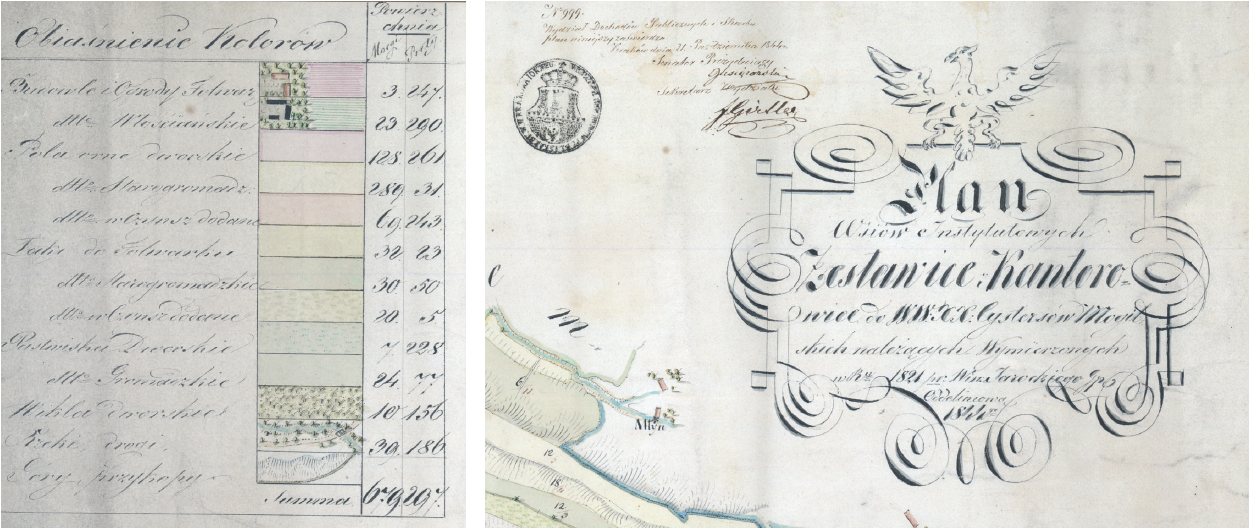 Obiaśnienie Kolorów
Powierzchnia
Morgi Pręty
Budowle i Ogrody Folwarcz 3. 247.
dtto Włościańskie 23 290.
Pola orne dworskie 128 261
dtto Starogromadz. 289 31.
dtto w Czynsz dodane 69 243.
Łąki do Folwarku 32 23
dtto Starogromadzkie 30 50
dtto w Czynsz dodane 20. 5.
Pastwiska Dworskie 7. 228
dtto Gromadzkie 24 77
Wikla dworskie 10 156
Rzeki drogi 39. 186
Góry przykopy
Summa 679 207.
N 999.
Wydział Dochodów Publicznych i Skarbu
plan niniejszy zatwierdza
Kraków dnia 21 Października 1844
Senator Prezydujący
Sekretarz Wydziału
Plan
Wsiów Instytutowych
Zesławice i Kantoro-
wice do WW. XX. Cystersów Mogil
skich należących Wymierzonych
w Ru 1821 po Win. Jarockiego Gp
Odnowiona
1844
e
m
6
Młyn
12
18
12